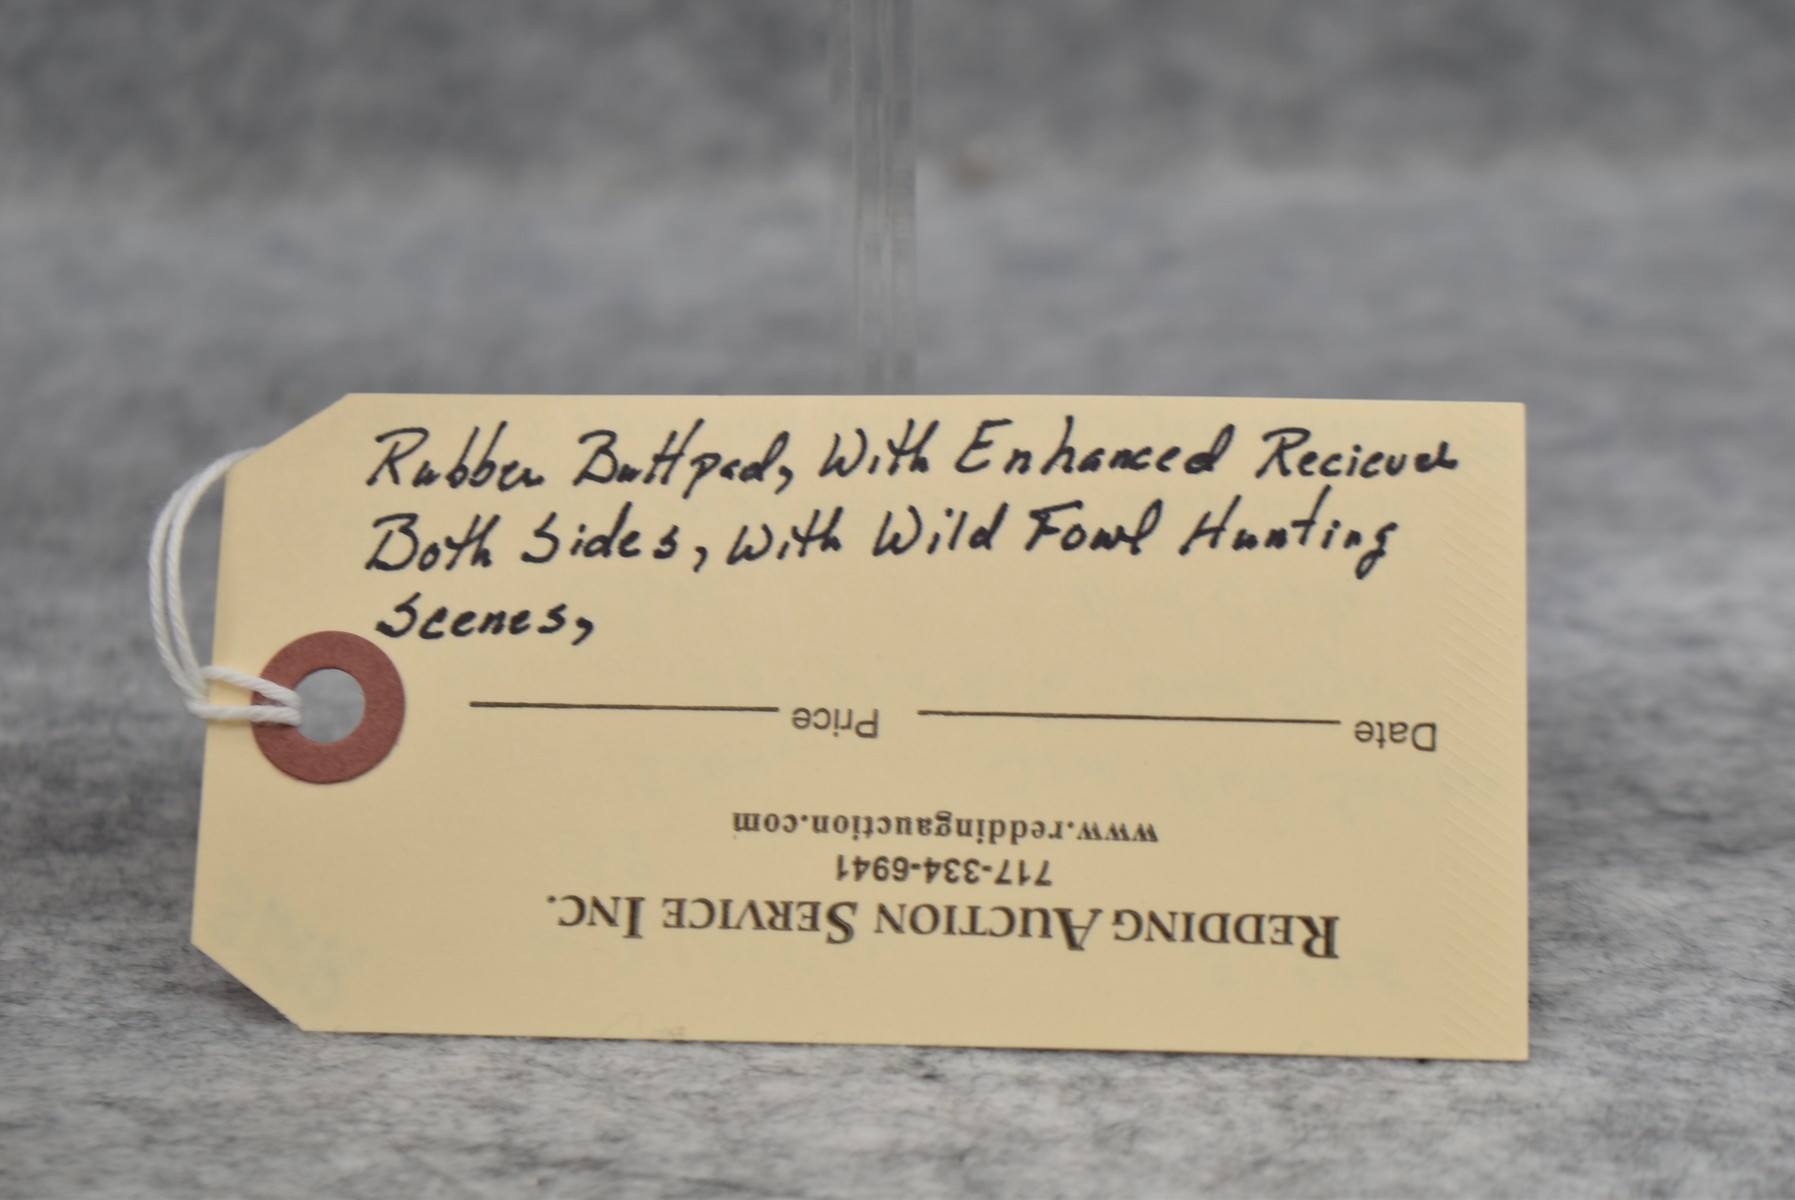 Rubber Buttpad, With Enhanced Reciever
Both Sides, With Wild Fowl Hunting
Scenes,
REDDING AUCTION SERVICE INC.
717-334-6941
www.reddingauction.com
Date Price